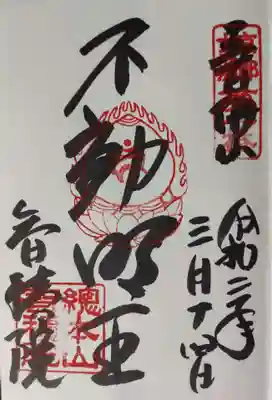 令和二年
三月十四日
不動明王
智積院
總本山
智積院